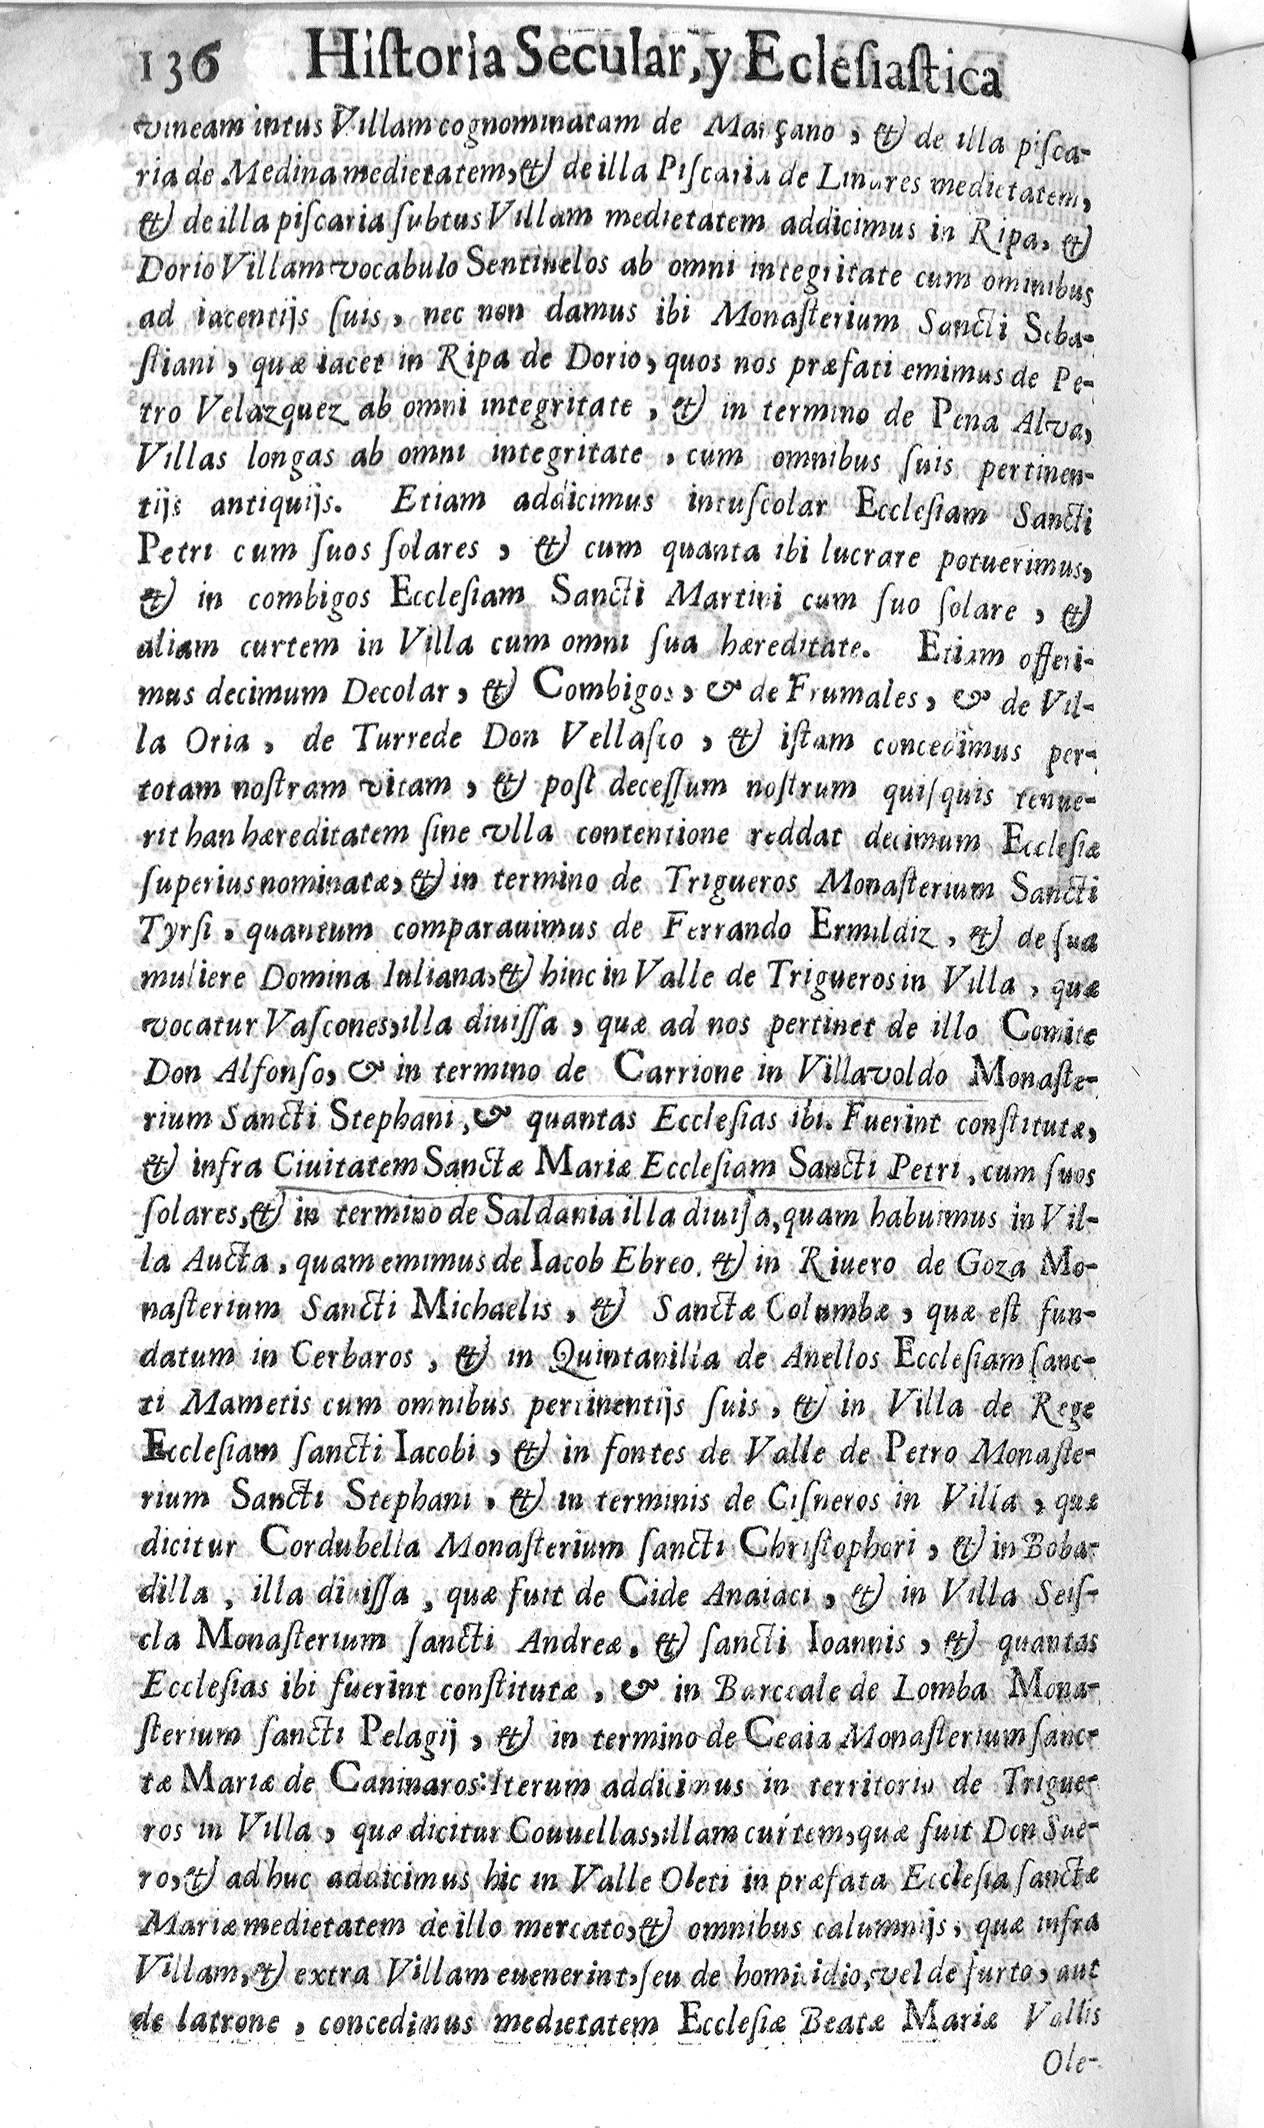 136 Hiſtoria Secular, y Ecleſiaſtica
vineam intus Villam cognominatam de Marçano, & de illa piſca-
ria de Medina medietatem, & de illa Piſcaria de Linares medietatem,
& de illa piſcaria ſubtus Villam medietatem addicimus in Ripa, &
Dorio Villam vocabulo Sentinelos ab omni integritate cum omnibus
ad iacentijs ſuis, nec non damus ibi Monaſterium Sancti Seba-
ſtiani, quæ iacet in Ripa de Dorio, quos nos præfati emimus de Pe-
tro Velazquez ab omni integritate, & in termino de Pena Alva,
Villas longas ab omni integritate, cum omnibus ſuis pertinen-
tijs antiquijs. Etiam addicimus intuſcolar Eccleſiam Sancti
Petri cum ſuos ſolares, & cum quanta ibi lucrare potuerimus,
& in combigos Eccleſiam Sancti Martini cum ſuo ſolare, &
aliam curtem in Villa cum omni ſua hæreditate. Etiam offeri-
mus decimum Decolar, & Combigos, & de Frumales, & de Vil-
la Oria, de Turrede Don Vellaſco, & iſtam concedimus per-
totam noſtram vitam, & poſt deceſſum noſtrum quiſquis tenue-
rit han hæreditatem ſine vlla contentione reddat decimum Eccleſiæ
ſuperius nominatæ, & in termino de Trigueros Monaſterium Sancti
Tyrſi, quantum comparauimus de Ferrando Ermildiz, & de ſua
muliere Domina Iuliana, & hinc in Valle de Trigueros in Villa, quæ
vocatur Vaſcones, illa diuiſſa, quæ ad nos pertinet de illo Comite
Don Alfonſo, & in termino de Carrione in Villavoldo Monaſte-
rium Sancti Stephani, & quantas Eccleſias ibi. Fuerint conſtitutæ,
& infra Ciuitatem Sanctæ Mariæ Eccleſiam Sancti Petri, cum ſuos
ſolares, & in termino de Saldania illa diuiſa, quam habuimus in Vil-
la Aucta, quam emimus de Iacob Ebreo, & in Riuero de Goza Mo-
naſterium Sancti Michaelis, & Sanctæ Columbæ, quæ eſt fun-
datum in Cerbaros, & in Quintanilla de Anellos Eccleſiam ſanc-
ti Mametis cum omnibus pertinentijs ſuis, & in Villa de Rege
Eccleſiam ſancti Iacobi, & in fontes de Valle de Petro Monaſte-
rium Sancti Stephani, & in terminis de Ciſneros in Villa, quæ
dicitur Cordubella Monaſterium ſancti Chriſtophori, & in Boba-
dilla, illa diuiſſa, quæ fuit de Cide Anaiaci, & in Villa Seiſ-
cla Monaſterium ſancti Andreæ, & ſancti Ioannis, & quantas
Eccleſias ibi fuerint conſtitutæ, & in Barceale de Lomba Mona-
ſterium ſancti Pelagij, & in termino de Ceaia Monaſterium ſanc-
tæ Mariæ de Caninaros: Iterum addicimus in territorio de Trigue-
ros in Villa, quæ dicitur Couuellas, illam curtem, quæ fuit Don Sue-
ro, & ad huc addicimus hic in Valle Oleti in præfata Eccleſia ſanctæ
Mariæ medietatem de illo mercato, & omnibus calumnijs, quæ infra
Villam, & extra Villam euenerint, ſeu de homicidio, vel de furto, aut
de latrone, concedimus medietatem Eccleſiæ Beatæ Mariæ Vallis
Ole-